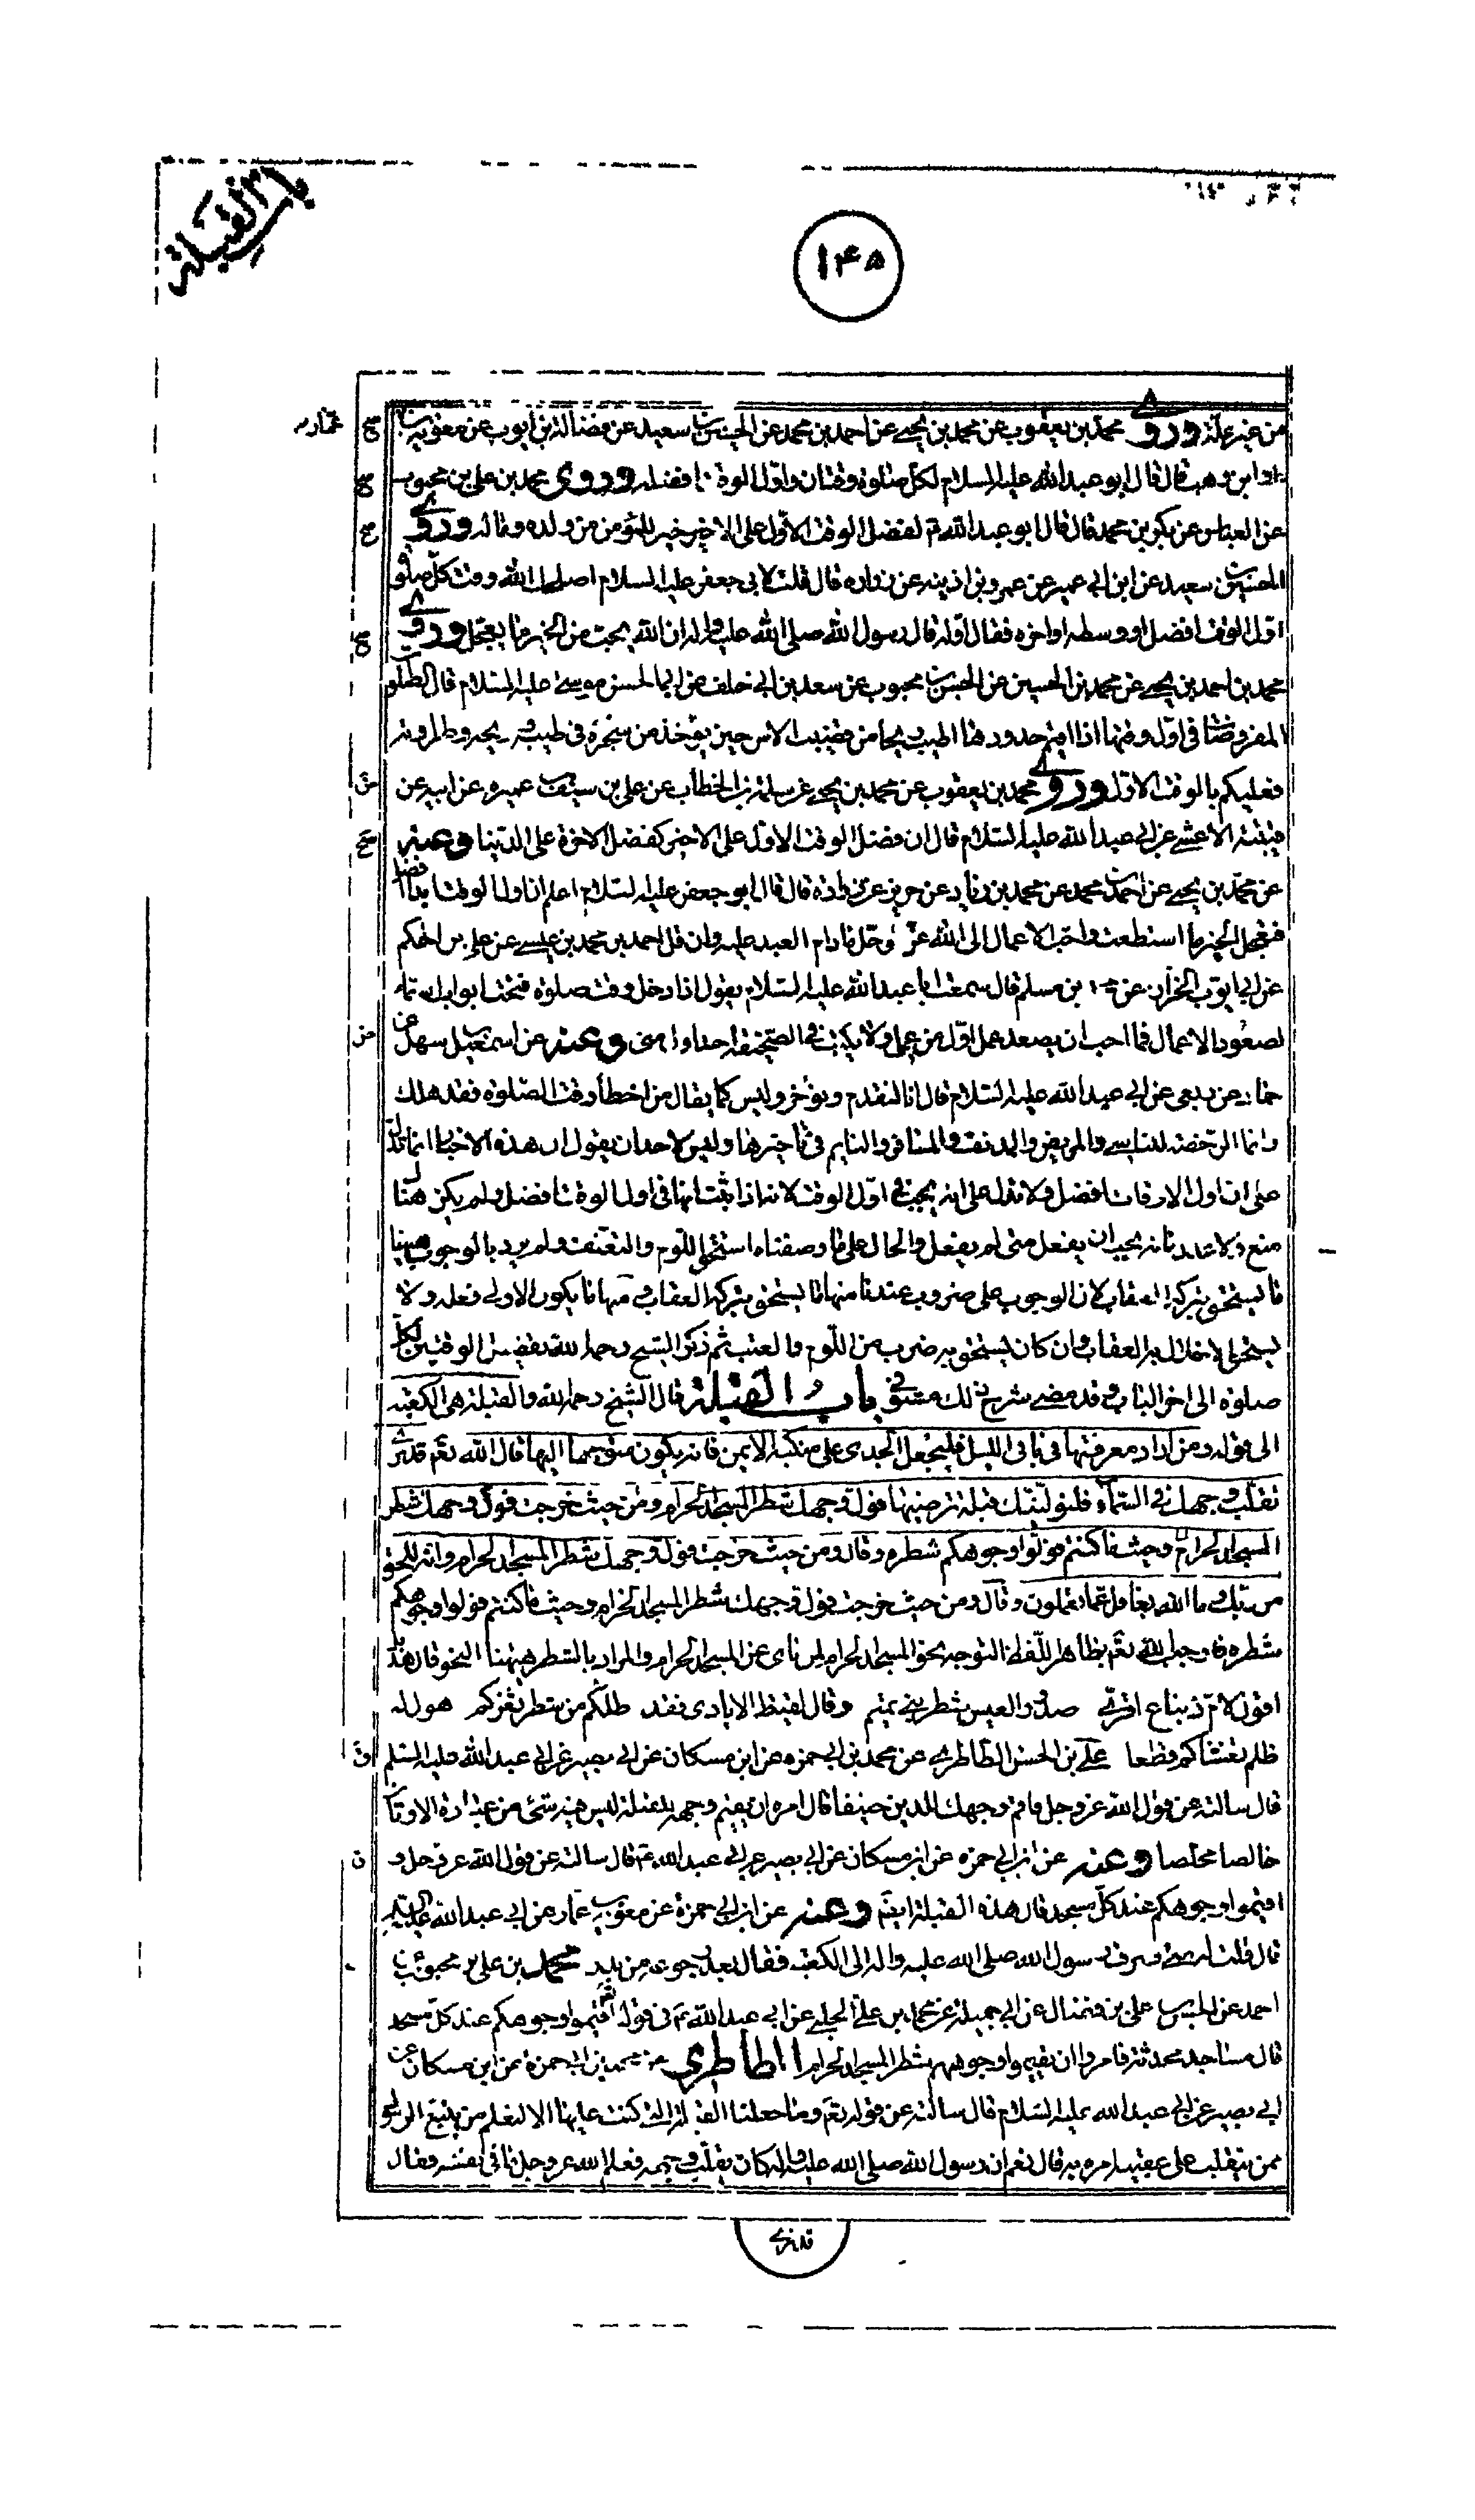 باب القبلة
١٤٥
من غير علة وروى محمد بن يعقوب عن محمد بن يحيى عن احمد بن محمد عن الحسين بن سعيد عن فضالة بن ايوب عن معوية بن
عمار صح
او ابن وهب قال قال ابو عبد الله عليه السلام لكل صلوة وقتان واول الوقت افضله وروى محمد بن علي بن محبوب
صح
عن العباس عن بكر بن محمد قال قال ابو عبد الله ع لفضل الوقت الاول على الاخير خير للمؤمن من ولده وماله وروى
صح
الحسين بن سعيد عن ابن ابي عمير عن عمر بن اذينه عن زراره قال قلت لابي جعفر عليه السلام اصلحك الله وقت كل صلوة
اول الوقت افضل او وسطه او اخره فقال اوله قال رسول الله صلى الله عليه واله ان الله يحب من الخير ما يعجل وروى
صح
محمد بن احمد بن يحيى عن محمد بن الحسين عن الحسن بن محبوب عن سعد بن ابي خلف عن ابي الحسن موسى عليه السلام قال الصلوة
المفروضات في اول وقتها اذا اقيم حدودها اطيب ريحا من قضيب الاس حين يؤخذ من شجره في طيبه وريحه وطراوته
فعليكم بالوقت الاول وروى محمد بن يعقوب عن محمد بن يحيى عن سلمة بن الخطاب عن علي بن سيف بن عميره عن ابيه عن
ض
قتيبة الاعشى عن ابي عبد الله عليه السلام قال ان فضل الوقت الاول على الاخير كفضل الاخرة على الدنيا وعنه
صح
عن محمد بن يحيى عن احمد بن محمد عن محمد بن زياد عن حريز عن زراره قال قال ابو جعفر عليه السلام اعلم ان اول الوقت ابدا افضل
فعجل الخير ما استطعت واحب الاعمال الى الله عز وجل ما دام العبد عليه وان قل احمد بن محمد بن عيسى عن علي بن الحكم
عن ابي ايوب الخزاز عن محمد بن مسلم قال سمعت ابا عبد الله عليه السلام يقول اذا دخل وقت صلوة فتحت ابواب السماء
لصعود الاعمال فما احب ان يصعد عمل اول من عملي ولا يكتب في الصحيفة احد اول مني وعنه عن اسمعيل بن سهل عن
ض
حماد عن ربعي عن ابي عبد الله عليه السلام قال انا لنقدم ونؤخر وليس كما يقال من اخطأ وقت الصلوة فقد هلك
وانما الرخصة للناسي والمريض والمدنف والمسافر والنايم في تأخيرها وليس لاحد ان يقول ان هذه الاخبار انما تدل
على ان اول الاوقات افضل ولا تدل على انه يجب في اول الوقت لانه اذا ثبت انها في اول الوقت افضل ولم يكن هناك
منع ولا عذر فانه يجب ان يفعل متى لم يفعل والحال على ما وصفناه استحق اللوم والتعنيف ولم نرد بالوجوب ههنا
ما يستحق بتركه العقاب لان الوجوب على ضروب عندنا منها ما يستحق بتركه العقاب ومنها ما يكون الاولى فعله ولا
يستحق بالاخلال به العقاب وان كان يستحق به ضرب من اللوم والعتب ثم ذكر الشيخ رحمه الله تفصيل الوقتين لكل
صلوة الى اخر الباب وقد مضى شرح ذلك مستوفى باب القبلة قال الشيخ رحمه الله والقبلة هي الكعبة
الى قوله ومن اراد معرفتها في باقي الليل فليجعل الجدى على منكبه الايمن فانه يكون متوجها اليها قال الله تعم قد نرى
تقلب وجهك في السماء فلنولينك قبلة ترضيها فول وجهك شطر المسجد الحرام ومن حيث خرجت فول وجهك شطر
المسجد الحرام وحيث ما كنتم فولوا وجوهكم شطره وقال ومن حيث خرجت فول وجهك شطر المسجد الحرام وانه للحق
من ربك وما الله بغافل عما تعملون وقال ومن حيث خرجت فول وجهك شطر المسجد الحرام وحيث ما كنتم فولوا وجوهكم
شطره فاوجب الله تعم بظاهر اللفظ التوجه نحو المسجد الحرام لمن ناى عن المسجد الحرام والمراد بالشطر ههنا النحو قال هذلي
اقول لام زنباع اقيمي صدور العيس شطر بني تميم وقال لقيط الايادي فقد اظلكم من شطر ثغركم هول له
ظلم تغشاكم قطعا علي بن الحسن الطاطري عن محمد بن ابي حمزه عن ابن مسكان عن ابي بصير عن ابي عبد الله عليه السلم
ق
قال سالته عن قول الله عز وجل فاقم وجهك للدين حنيفا قال امره ان يقيم وجهه للقبلة ليس فيه شئ من عبادة الاوثان
خالصا مخلصا وعنه عن ابن ابي حمزه عن ابن مسكان عن ابي بصير عن ابي عبد الله ع قال سالته عن قول الله عز وجل و
ق
اقيموا وجوهكم عند كل مسجد قال هذه القبلة ايضا وعنه عن ابن ابي حمزة عن معوية بن عمار عن ابي عبد الله عليه السلم
قال قلت له متى صرف رسول الله صلى الله عليه واله الى الكعبة فقال بعد رجوعه من بدر محمد بن علي بن محبوب عن
احمد عن الحسن بن علي بن فضال عن ابي جميلة عن محمد بن علي الحلبي عن ابي عبد الله ع في قوله تعم اقيموا وجوهكم عند كل مسجد
قال مساجد محدثة فامروا ان يقيموا وجوههم شطر المسجد الحرام الطاطري عن محمد بن ابي حمزة عن ابن مسكان عن
ابي بصير عن ابي عبد الله عليه السلام قال سالته عن قوله تعم وما جعلنا القبلة التي كنت عليها الا لنعلم من يتبع الرسول
ممن ينقلب على عقبيه امره به قال نعم ان رسول الله صلى الله عليه واله كان يقلب وجهه فعلم الله عز وجل ما في نفسه فقال
قد نرى